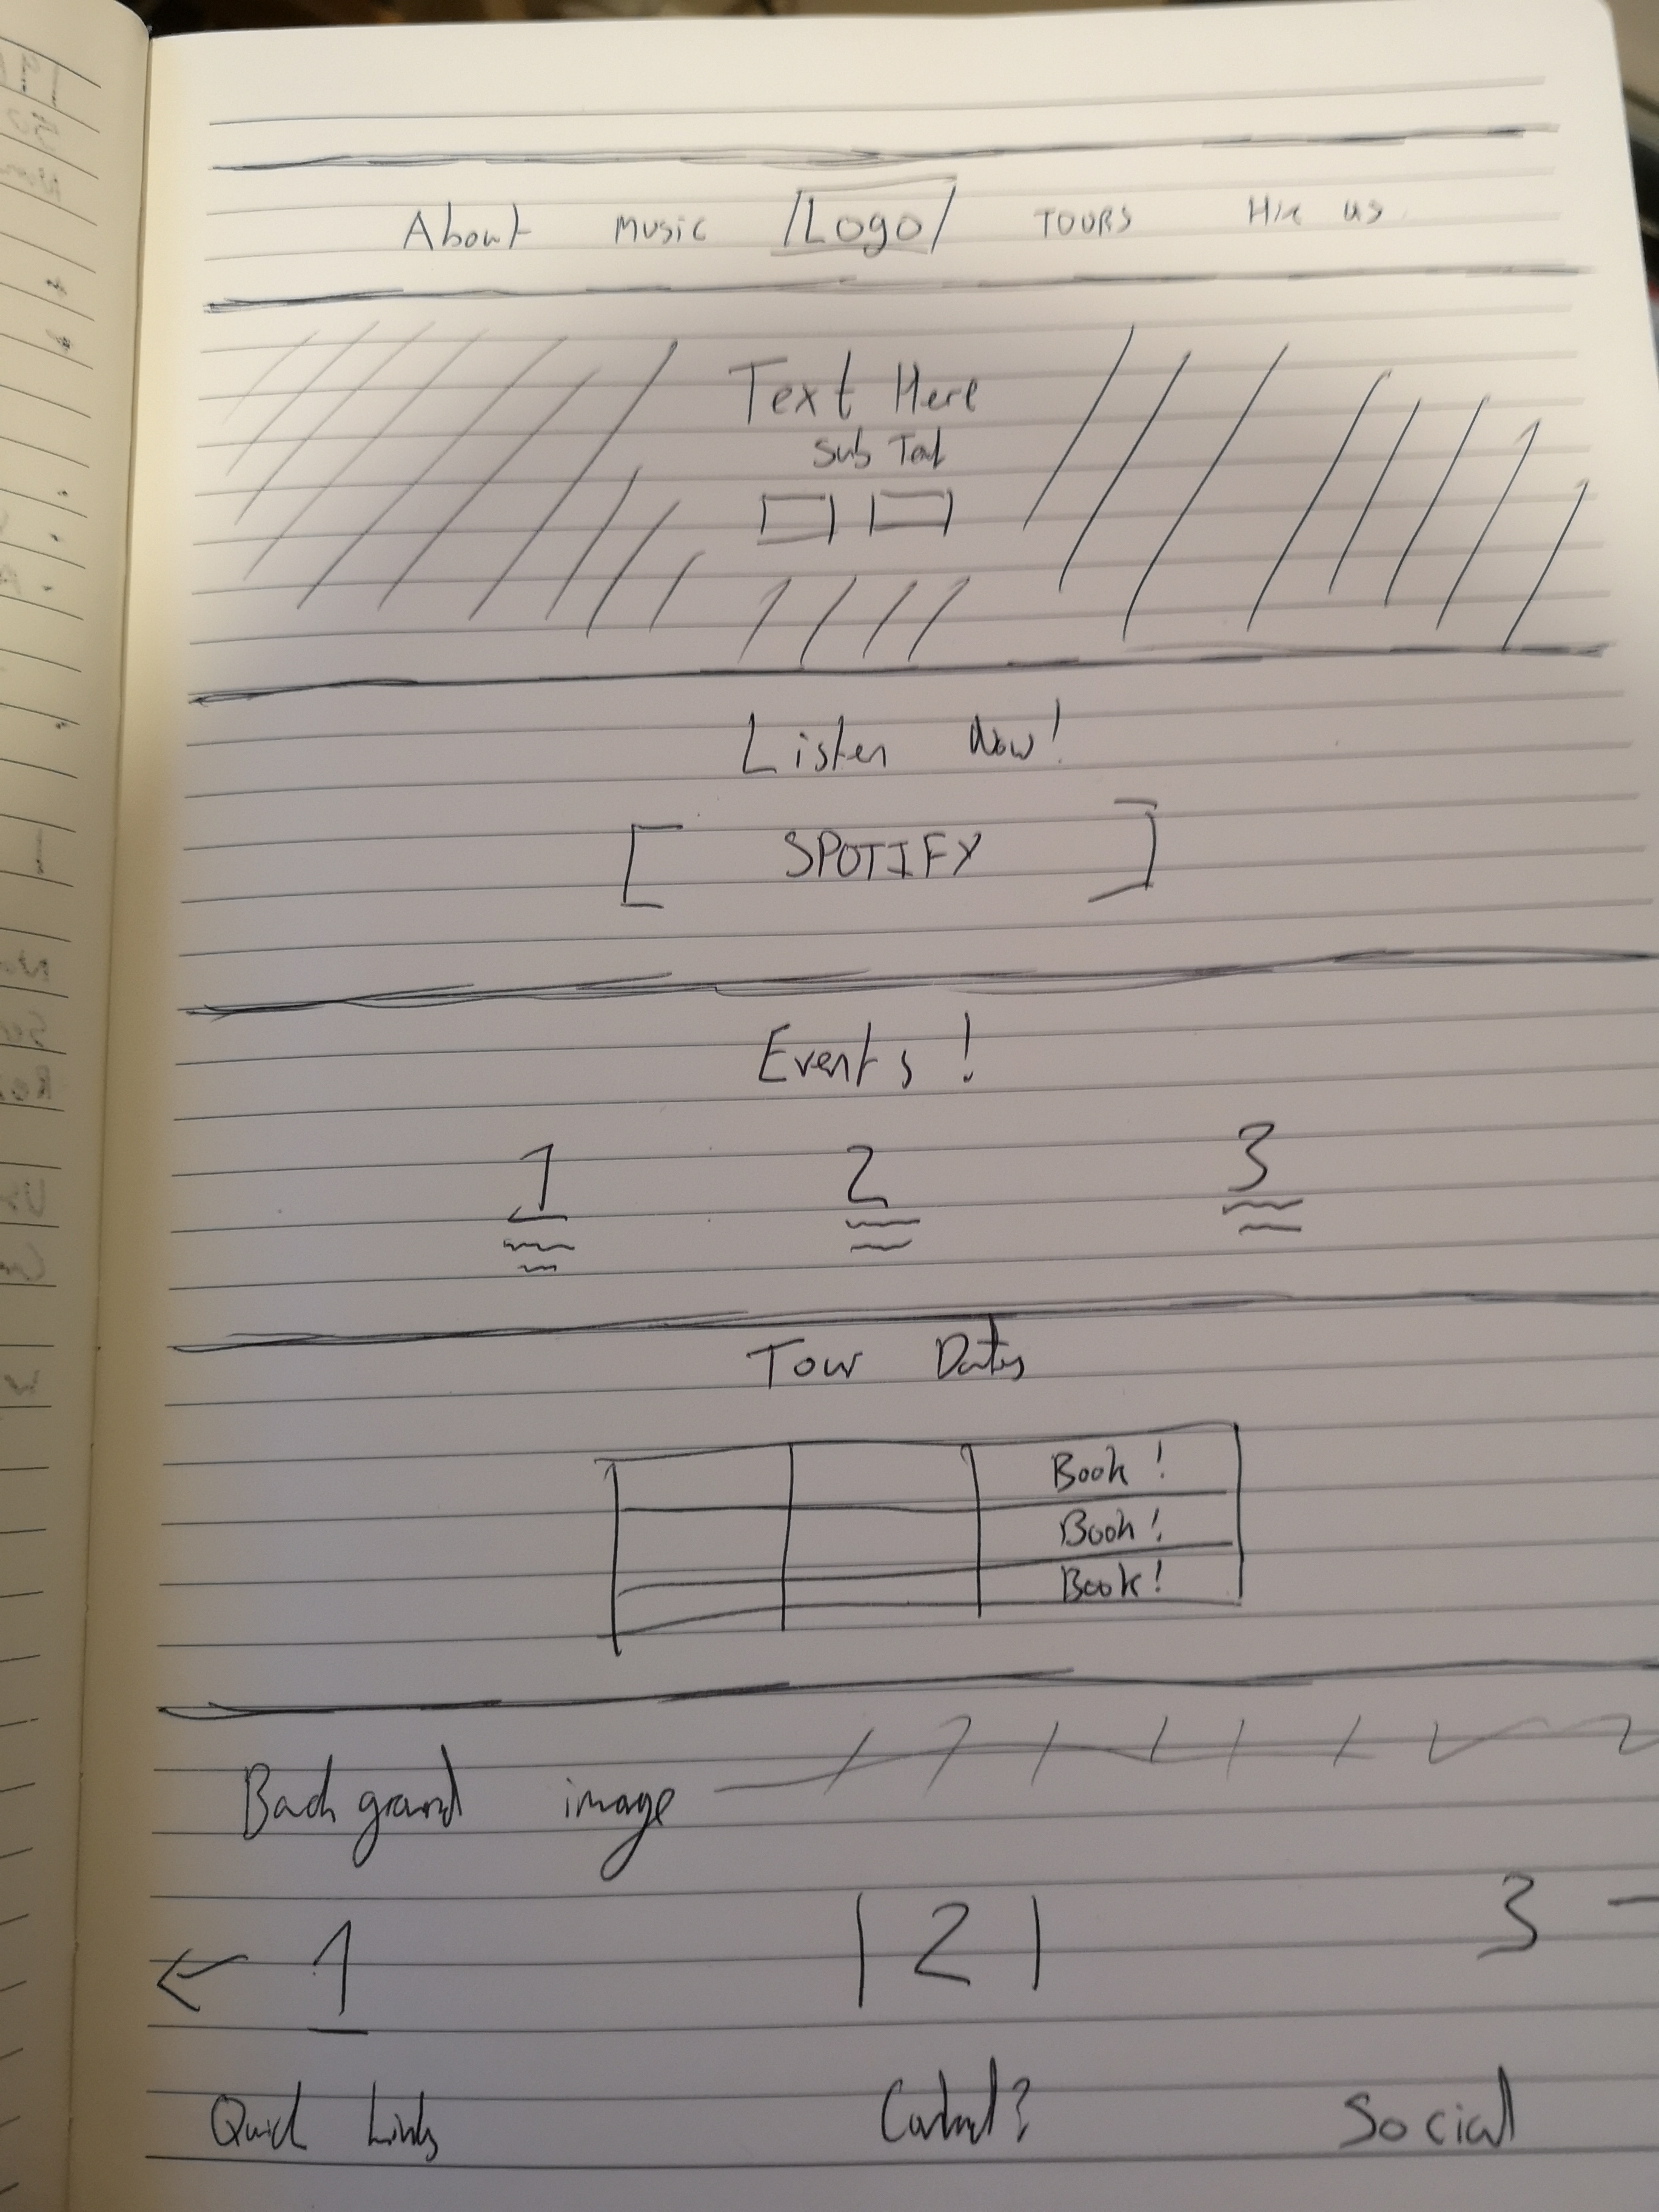 About MUSIC Logo TOURS Hire us
Text Here
Sub Text
Listen Now!
SPOTIFY
Events!
1 2 3
Tour Dates
Book!
Book!
Book!
Background image
1 2 3
Quick Links Contact? Social